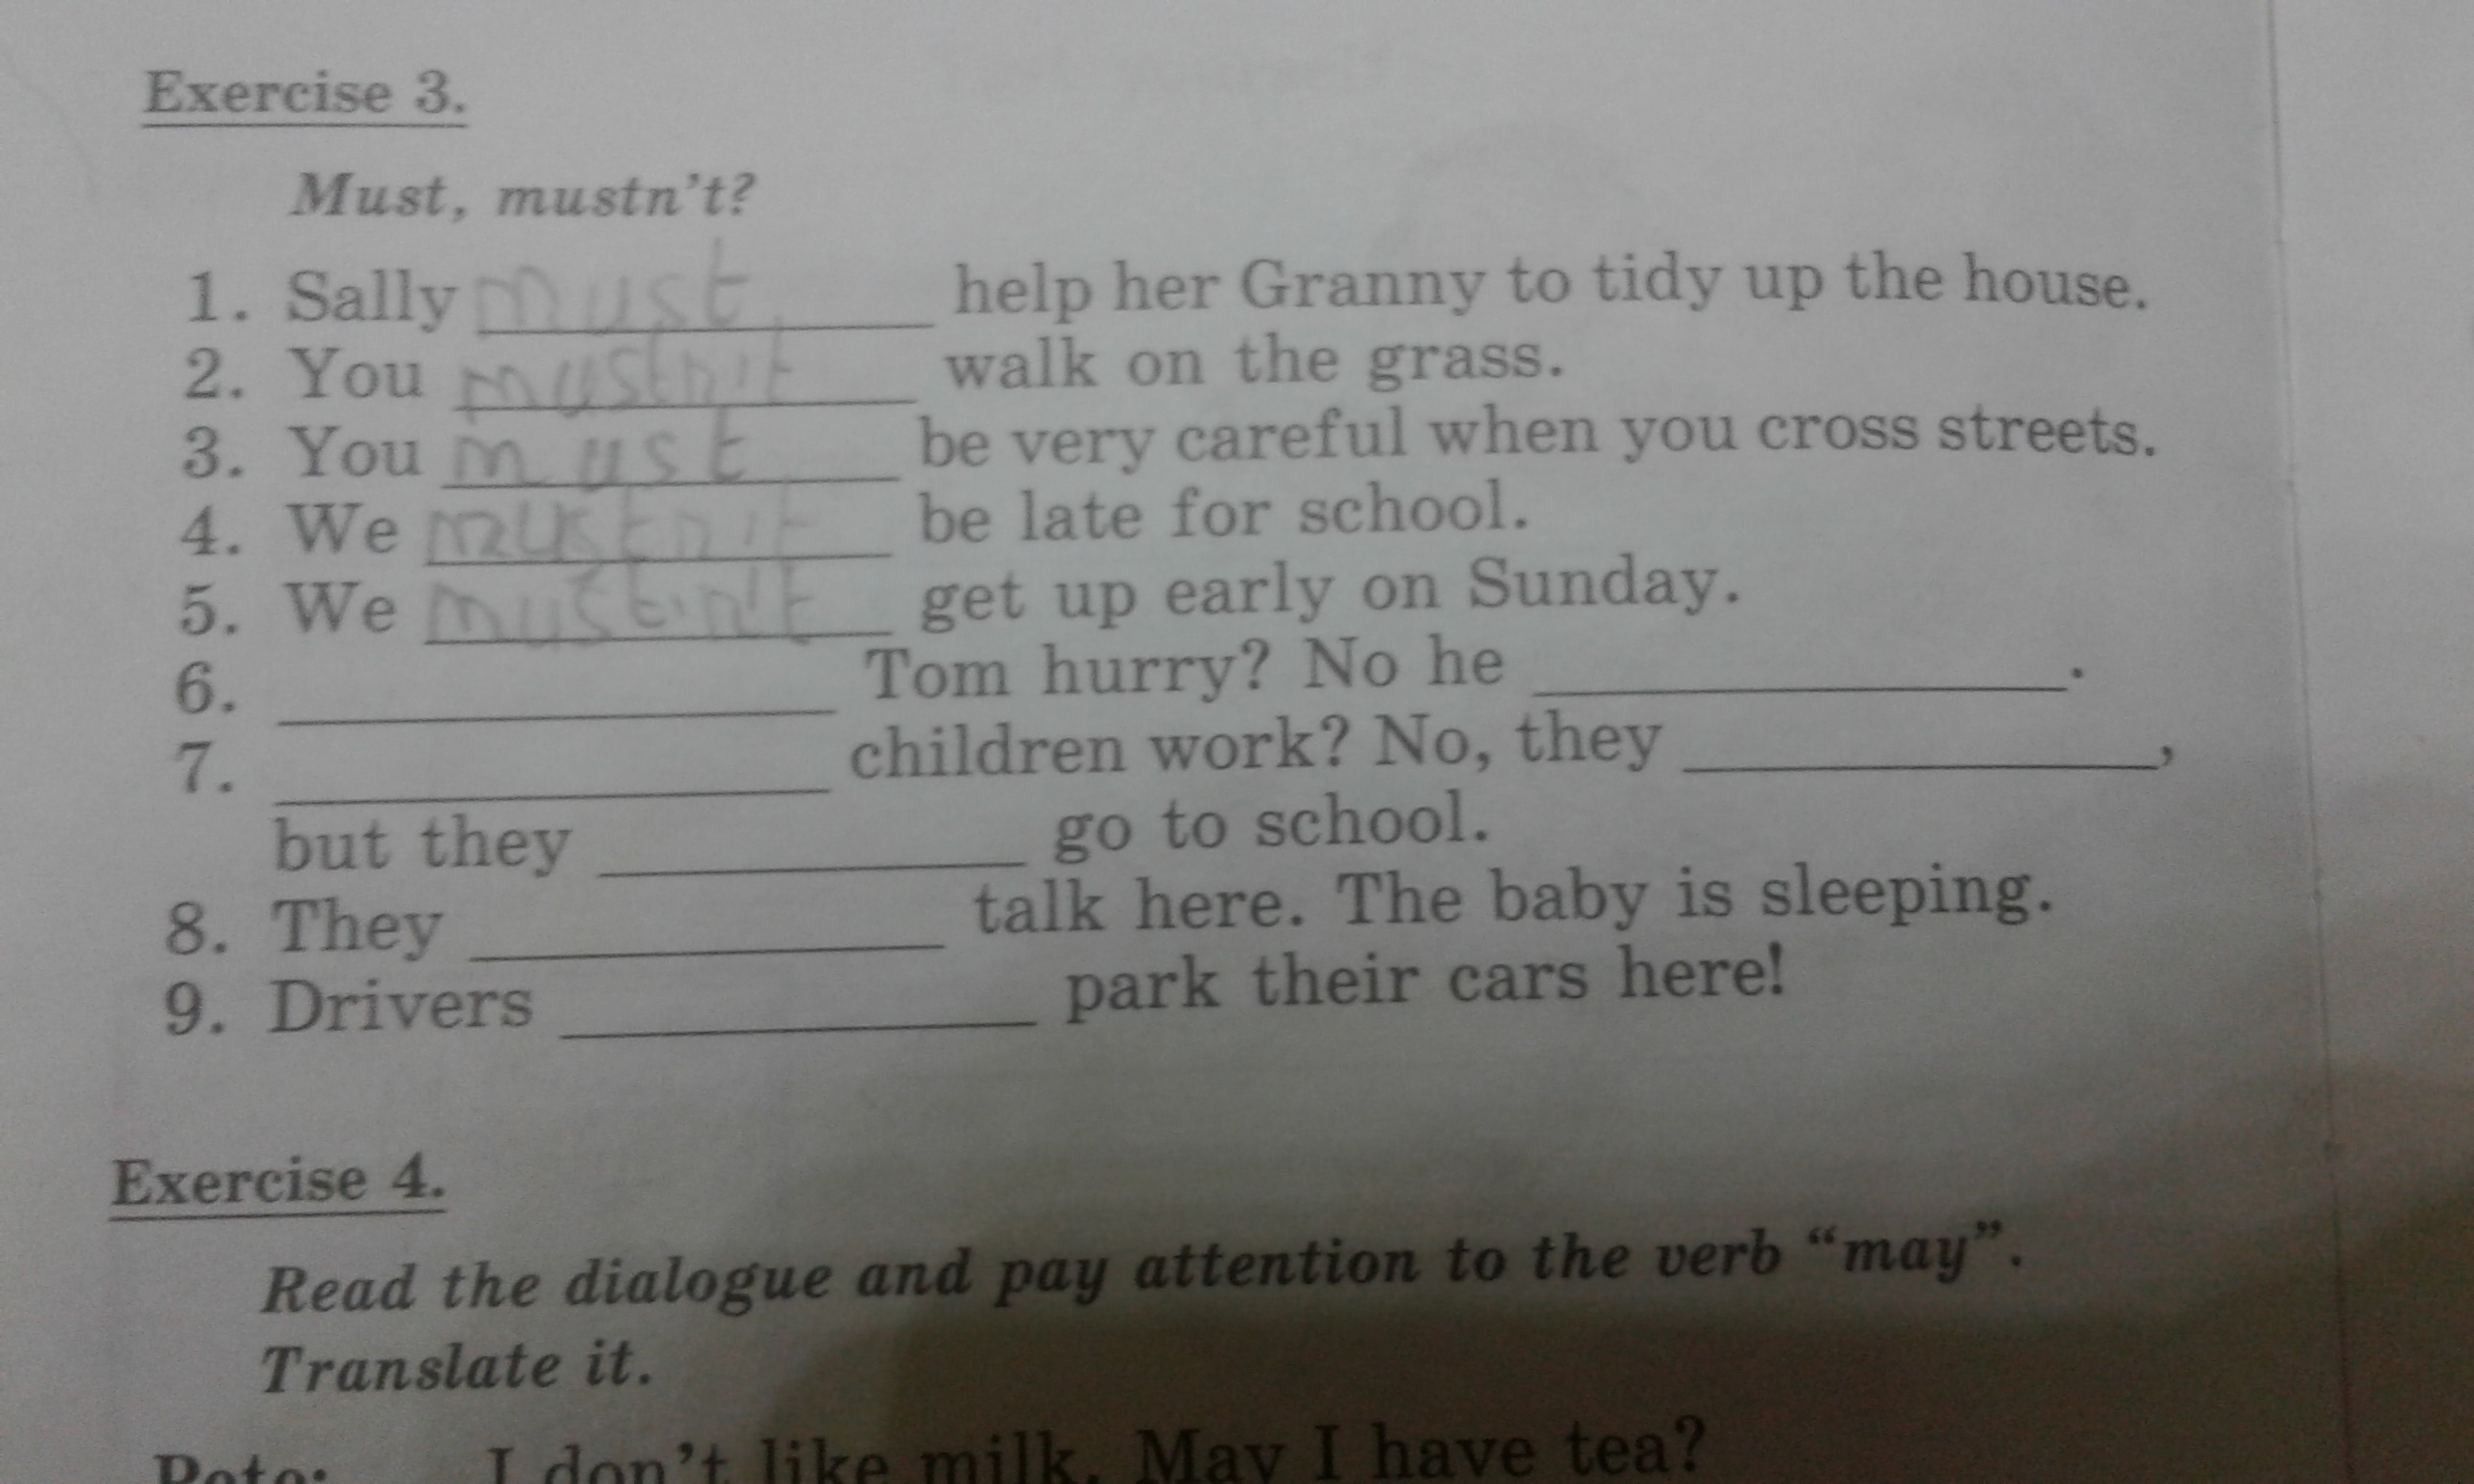 Exercise 3.
Must, mustn't?
1. Sally must help her Granny to tidy up the house.
2. You mustn't walk on the grass.
3. You must be very careful when you cross streets.
4. We mustn't be late for school.
5. We mustn't get up early on Sunday.
6. ____________ Tom hurry? No he ____________.
7. ____________ children work? No, they ____________,
but they ____________ go to school.
8. They ____________ talk here. The baby is sleeping.
9. Drivers ____________ park their cars here!
Exercise 4.
Read the dialogue and pay attention to the verb “may”.
Translate it.
I don't like milk. May I have tea?